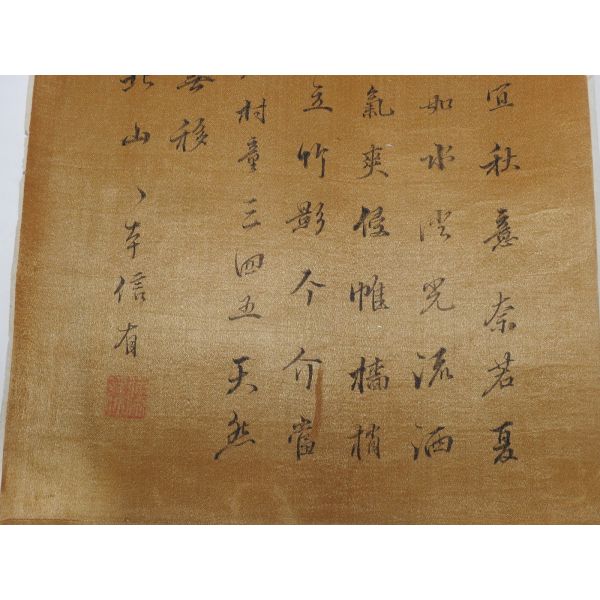 宜秋意奈若夏
如水澄光流洒
氣爽侵帷牆梢
立竹影个介當
村童三四五天然
移
北山丶本信有